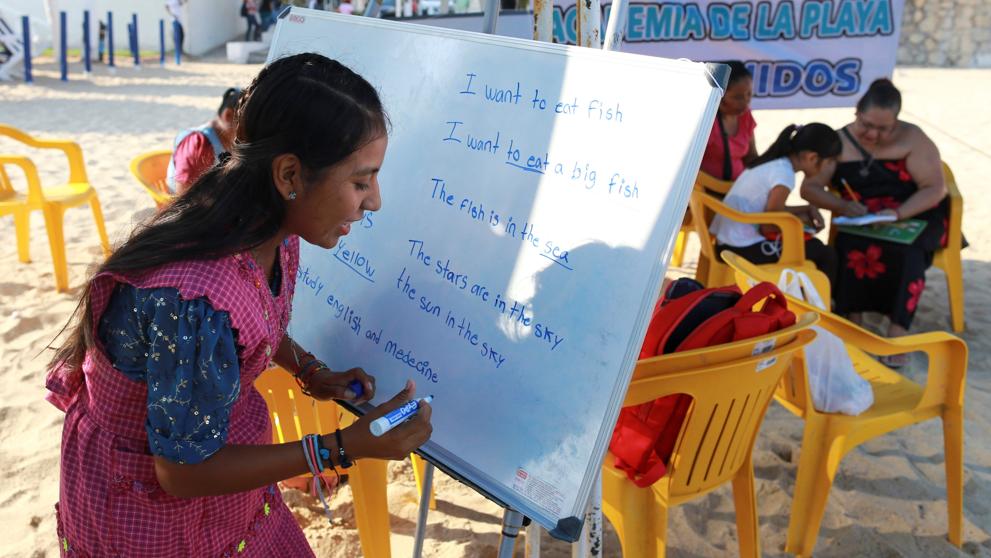 ACADEMIA DE LA PLAYA
I want to eat fish
I want to eat a big fish
The fish is in the sea
yellow
The stars are in the sky
the sun in the sky
study english and medecine
EXPO